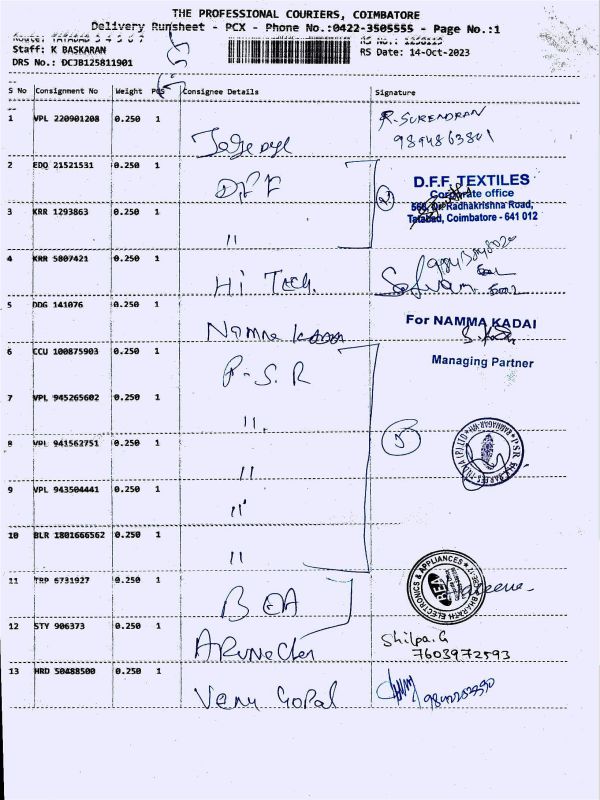 THE PROFESSIONAL COURIERS, COIMBATORE
Delivery Runsheet - PCX - Phone No.:0422-3505555 - Page No.:1
Route: TATABAD
Staff: K BASKARAN
RS Date: 14-Oct-2023
DRS No.: DCJB125811901
S No Consignment No Weight PCS Consignee Details Signature
1 VPL 220901208 0.250 1 R. SURENDRAN
9894863841
2 EDQ 21521531 0.250 1 D.F.F D.F.F. TEXTILES
Corporate office
Radhakrishna Road,
Tatabad, Coimbatore - 641 012
3 KRR 1293863 0.250 1 "
4 KRR 5807421 0.250 1 Hi Tech.
5 DDG 141076 0.250 1 Namma Kadai For NAMMA KADAI
Managing Partner
6 CCU 100875903 0.250 1 P-S.R
7 VPL 945265602 0.250 1 "
8 VPL 941562751 0.250 1 "
9 VPL 943504441 0.250 1 "
10 BLR 1801666562 0.250 1 "
11 TRP 6731927 0.250 1 BEA BHARATH ELECTRONICS & APPLIANCES
12 STY 906373 0.250 1 Shilpa.G
7603972593
13 HRD 50488500 0.250 1 Venu Gopal